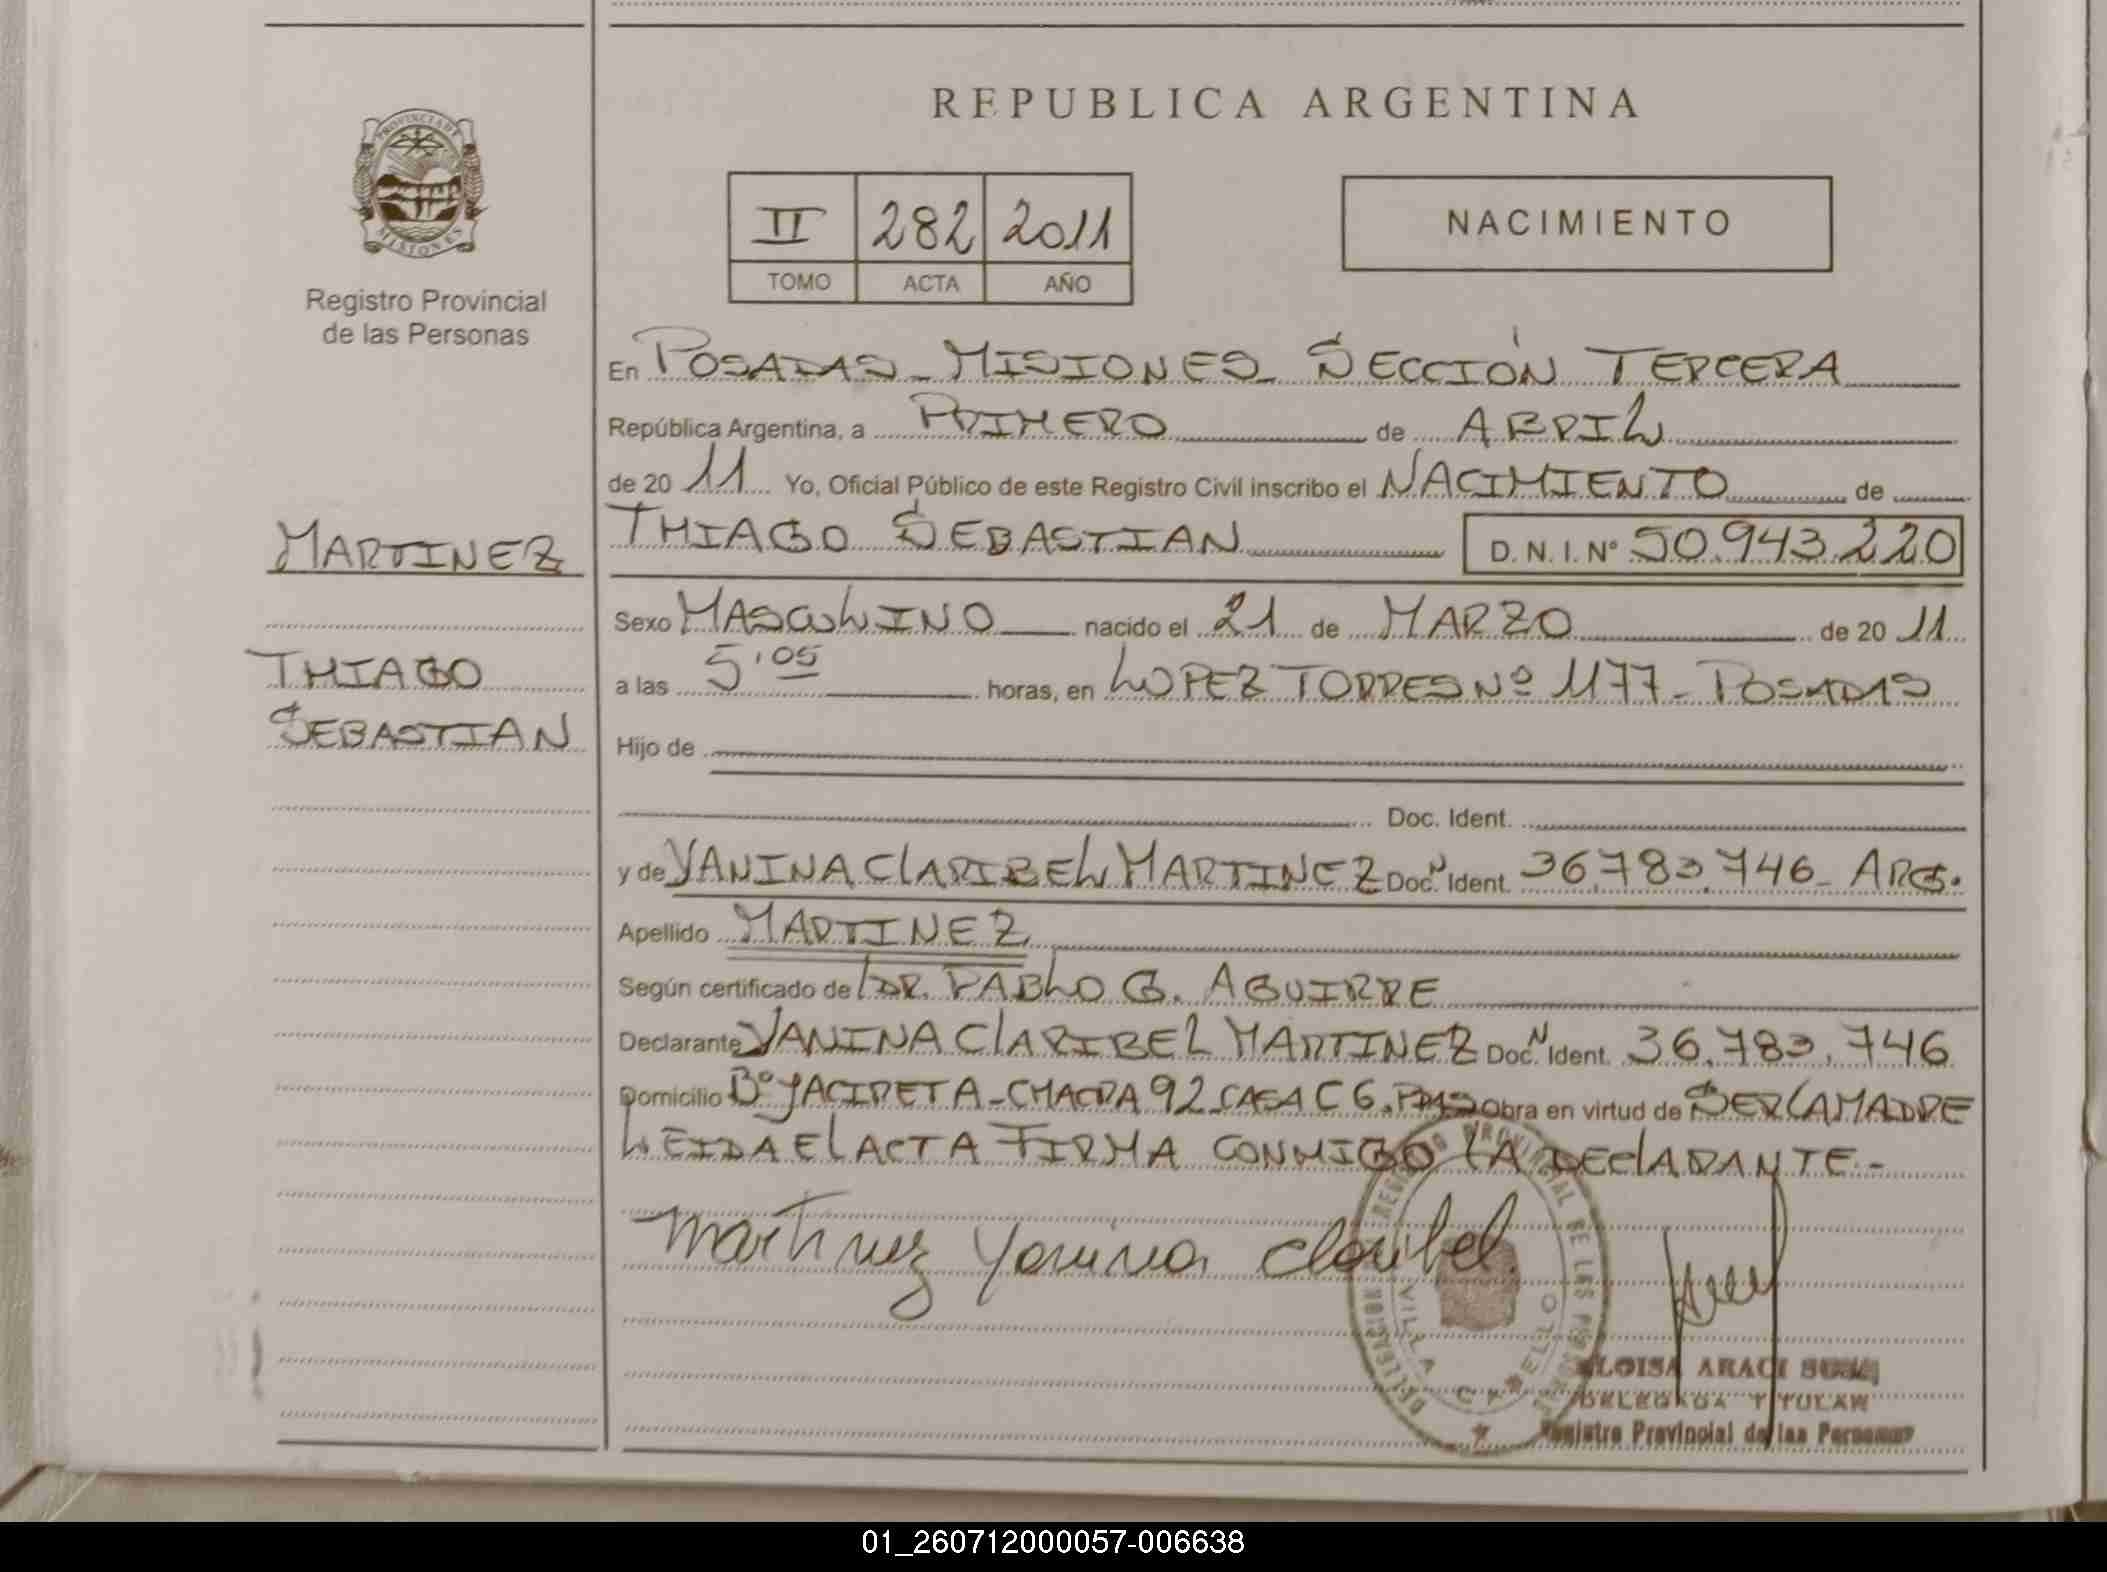 REPUBLICA ARGENTINA
PROVINCIA DE
MISIONES
Registro Provincial
de las Personas
II 282 2011
TOMO ACTA AÑO
NACIMIENTO
En POSADAS - MISIONES - SECCIÓN TERCERA
República Argentina, a PRIMERO de ABRIL
de 20 11 Yo, Oficial Público de este Registro Civil inscribo el NACIMIENTO de
MARTINEZ
THIAGO SEBASTIAN D.N.I. Nº 50.943.220
Sexo MASCULINO nacido el 21 de MARZO de 20 11
THIAGO
SEBASTIAN
a las 5'05 horas, en LOPEZ TORRES Nº 1177 - POSADAS
Hijo de
Doc. Ident.
y de YANINA CLARIBEL MARTINEZ Doc. N Ident. 36.783.746 - ARG.
Apellido MARTINEZ
Según certificado de DR. PABLO G. AGUIRRE
Declarante YANINA CLARIBEL MARTINEZ Doc. N Ident. 36.783.746
Domicilio Bº YACIRETA - CHACRA 92 - CASA C 6. PDAS Obra en virtud de SER LA MADRE
LEIDA EL ACTA FIRMA CONMIGO LA DECLARANTE -
Martinez Yanina Claribel.
DELEGACION REGISTRO PROVINCIAL DE LAS PERSONAS
VILLA CABELLO
ELOISA ARACI
DELEGADA TITULAR
Registro Provincial de las Personas
01_260712000057-006638